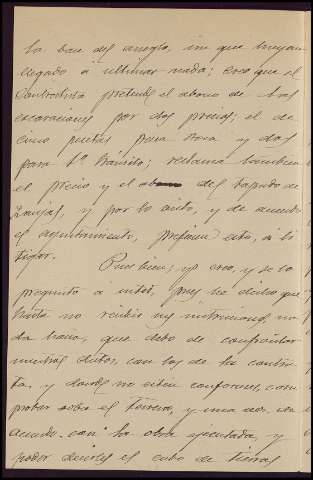 la base del arreglo, sin que hayan
llegado á ultimar nada; creo que el
Contratista pretende el abono de las
escavaciones por dos precios; el de
cinco pesetas para roca y dos
para t. tránsito; reclama tambien
el precio y el abono del tapado de
Zanjas, y por lo visto, y de acuerdo
el ayuntamiento, prefieren esto, á li
tigar.
Pues bien; yo creo, y se lo
pregunto á usted, pues he dicho que
hasta no recibir sus instrucciones, no
da haria, que debo de confrontar
nuestros datos, con los de la contra
ta, y donde no esten conformes, com
probar sobre el terreno, y una vez de
acuerdo con la obra ejecutada, y
poder decirles el cubo de tierras